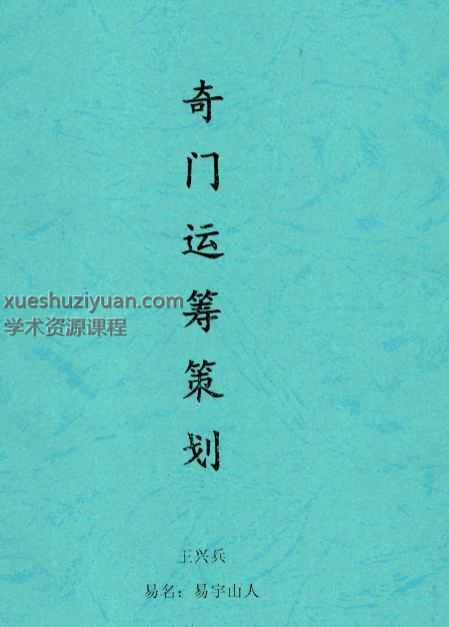 奇门运筹策划
xueshuziyuan.com
学术资源课程
王兴兵
易名：易宇山人